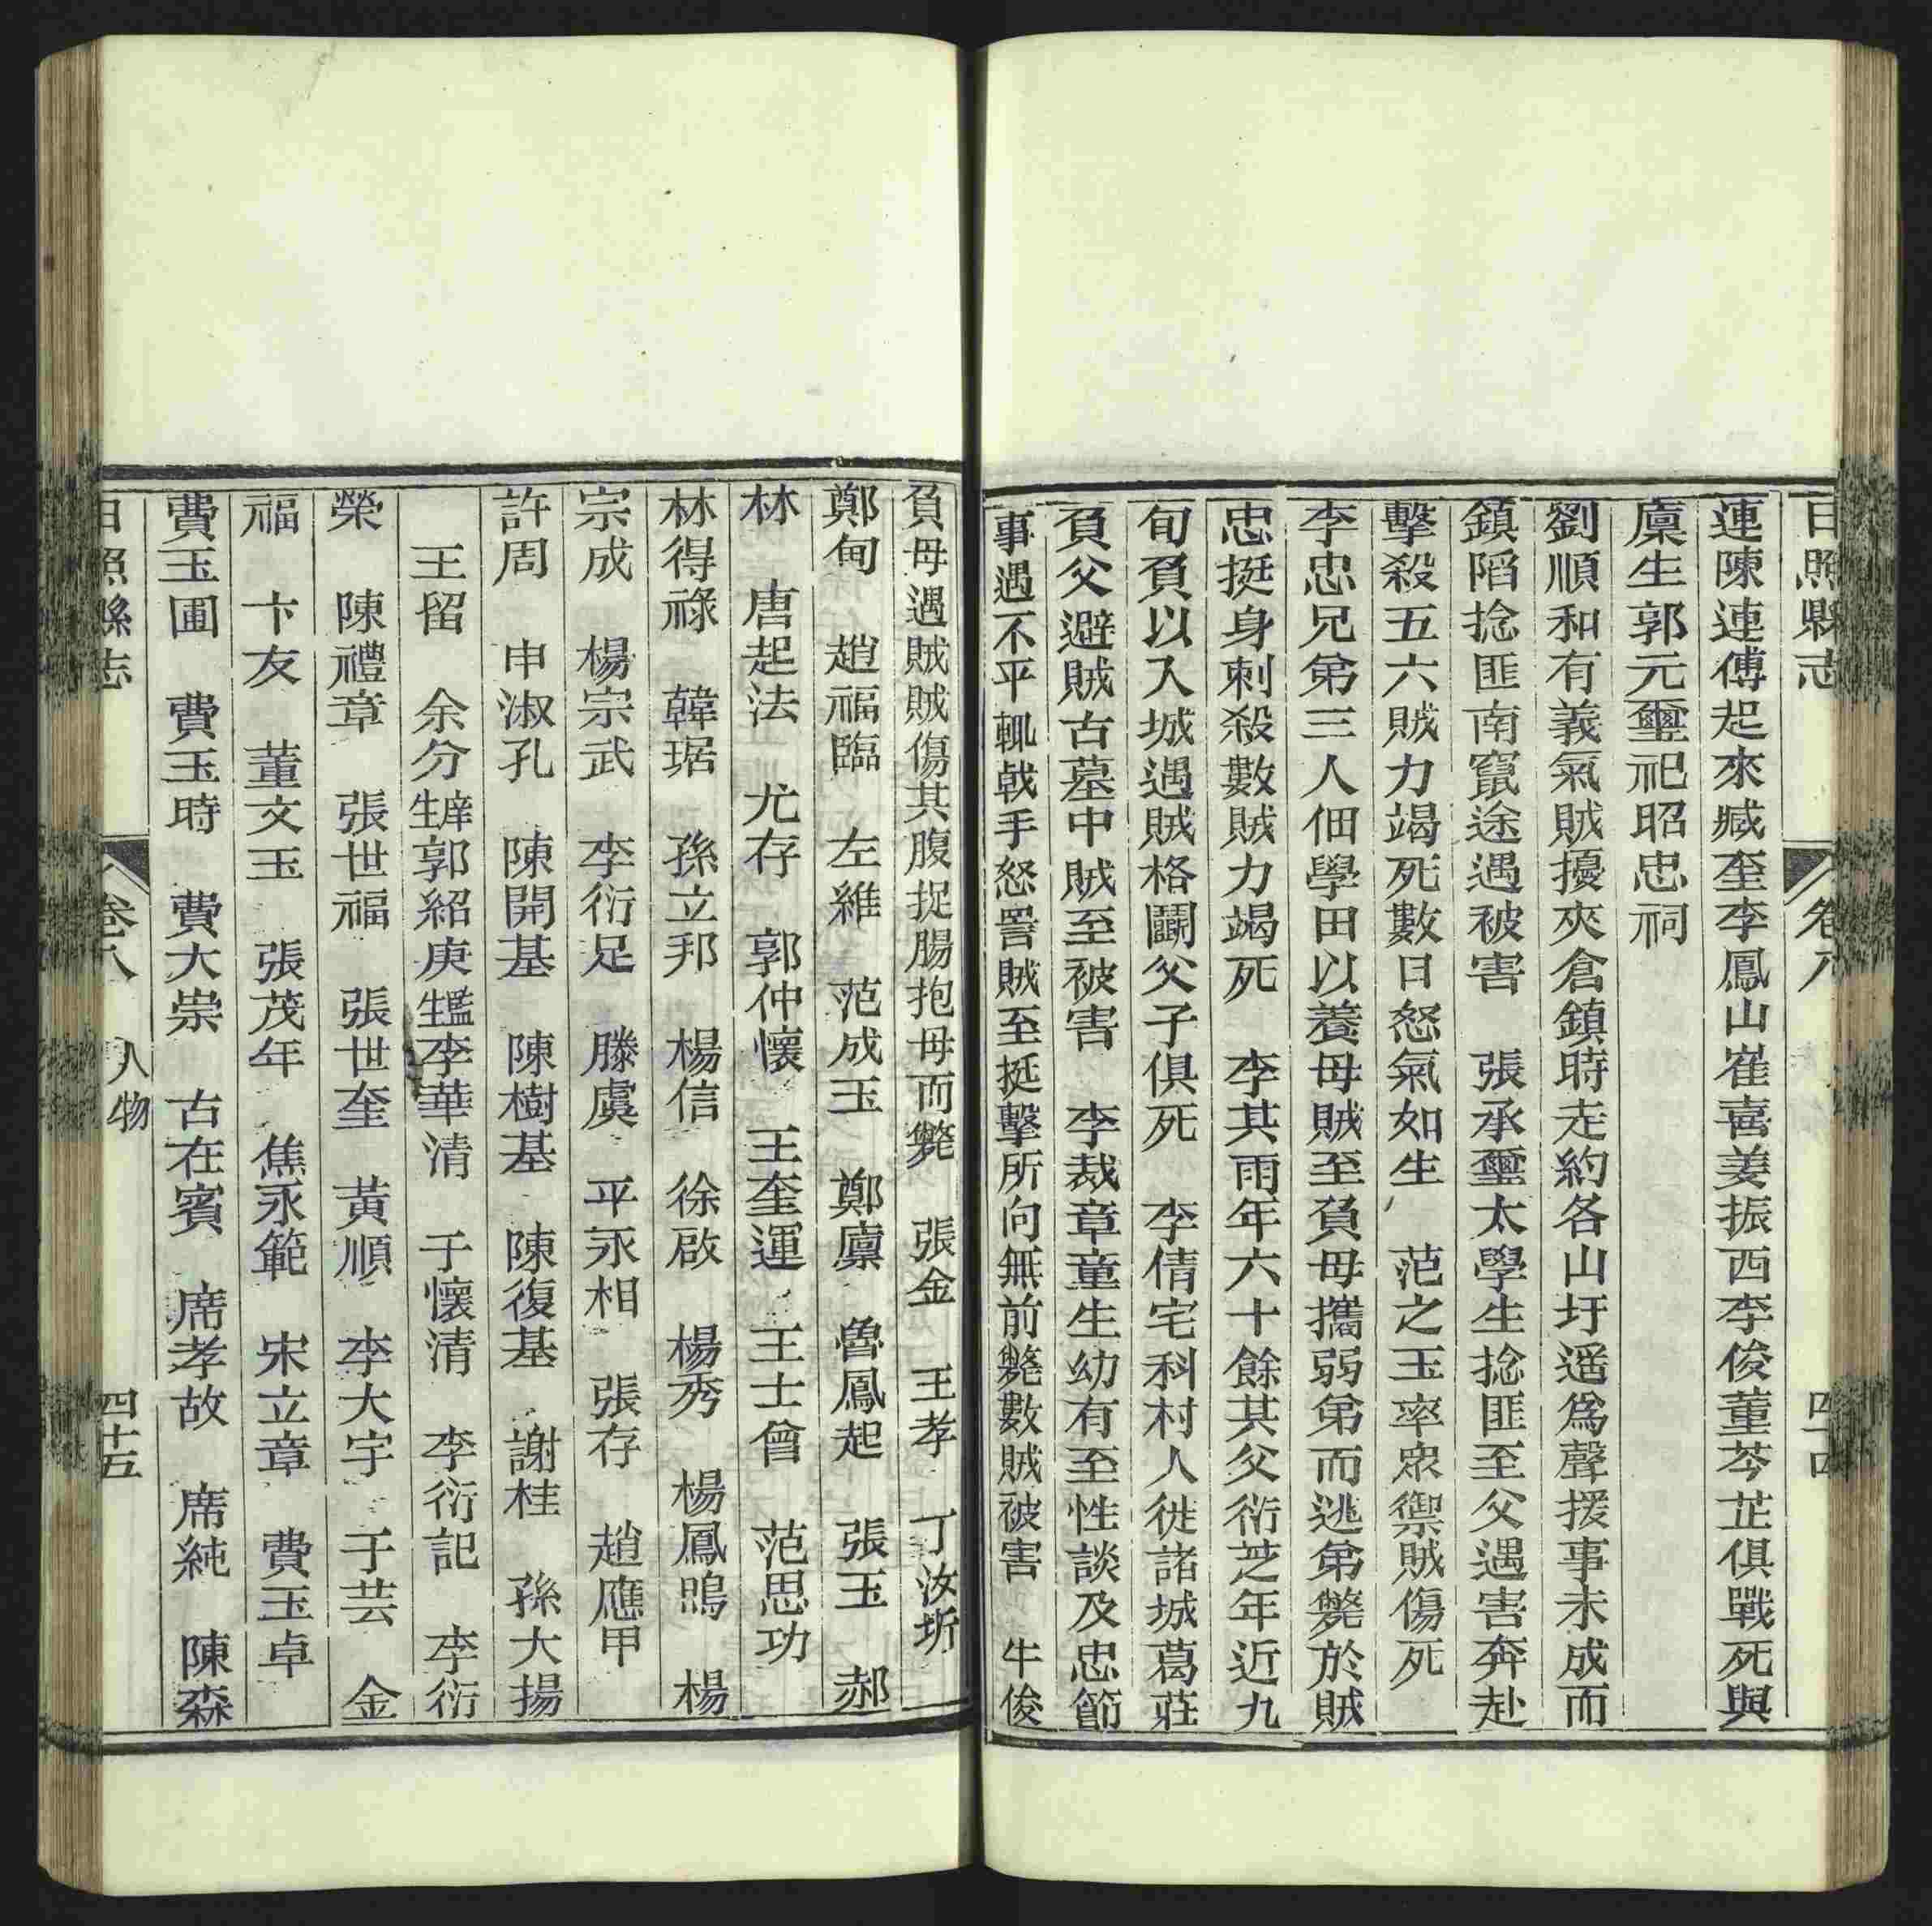 日照縣志 卷八 四十四
連陳連傅起來臧奎李鳳山崔喜姜振西李俊董芩芷俱戰死與
廩生郭元璽祀昭忠祠
劉順和有義氣賊擾夾倉鎮時走約各山圩遥爲聲援事未成而
鎮陷捻匪南竄途遇被害 張承璽太學生捻匪至父遇害奔赴
擊殺五六賊力竭死數日怒氣如生 范之玉率衆禦賊傷死
李忠兄弟三人佃學田以養母賊至負母攜弱弟而逃弟斃於賊
忠挺身刺殺數賊力竭死 李其雨年六十餘其父衍芝年近九
旬負以入城遇賊格鬭父子俱死 李倩宅科村人徙諸城葛莊
負父避賊古墓中賊至被害 李裁章童生幼有至性談及忠節
事遇不平輒戟手怒詈賊至挺擊所向無前斃數賊被害 牛俊
負母遇賊賊傷其腹捉腸抱母而斃 張金 王孝 丁汝圻
鄭甸 趙福臨 左維 范成玉 鄭廩 魯鳳起 張玉 郝
林 唐起法 尤存 郭仲懷 王奎運 王士曾 范思功
林得祿 韓琚 孫立邦 楊信 徐啟 楊秀 楊鳳鳴 楊
宗成 楊宗武 李衍足 滕虞 平永相 張存 趙應甲
許周 申淑孔 陳開基 陳樹基 陳復基 謝桂 孫大揚
王留 余分 庠生郭紹庚 監生李華清 于懷清 李衍記 李衍
榮 陳禮章 張世福 張世奎 黃順 李大宇 于芸 金
福 卞友 董文玉 張茂年 焦永範 宋立章 費玉卓
費玉圃 費玉時 費大崇 古在賓 席孝故 席純 陳森
日照縣志 卷八 人物 四十五